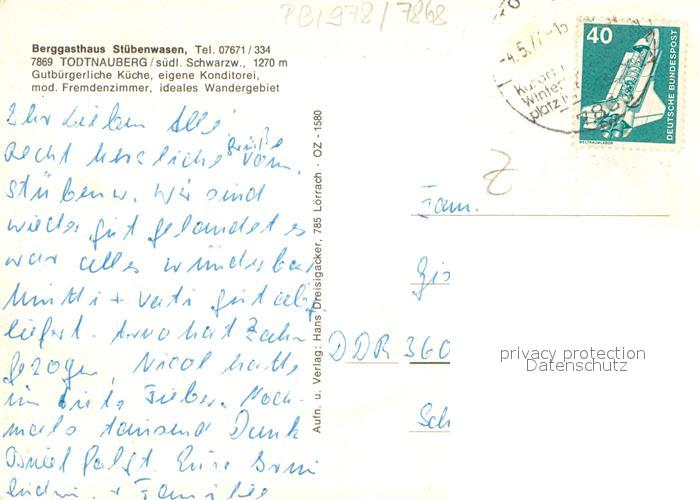 PB1978/7868
Berggasthaus Stübenwasen, Tel. 07671/334
7869 TODTNAUBERG/südl. Schwarzw., 1270 m
Gutbürgerliche Küche, eigene Konditorei,
mod. Fremdenzimmer, ideales Wandergebiet
Ihr Lieben Alle
recht herzliche Grüße vom
stübenw. Wir sind
wieder gut gelandet es
war alles wunderbar
Mutti + Vati gut
liefert. hat Zahn
gezogen, Nicol hatte
Fieber. Noch-
mals tausend Dank
Brief folgt. Eure
+ Familie
Aufn. u. Verlag: Hans Dreisigacker, 785 Lörrach · OZ - 1580
-4.5.77-15
Winter
platz
786
40
DEUTSCHE BUNDESPOST
WELTRAUMLABOR
Z
Fam.
DDR 360
Sch
privacy protection
Datenschutz